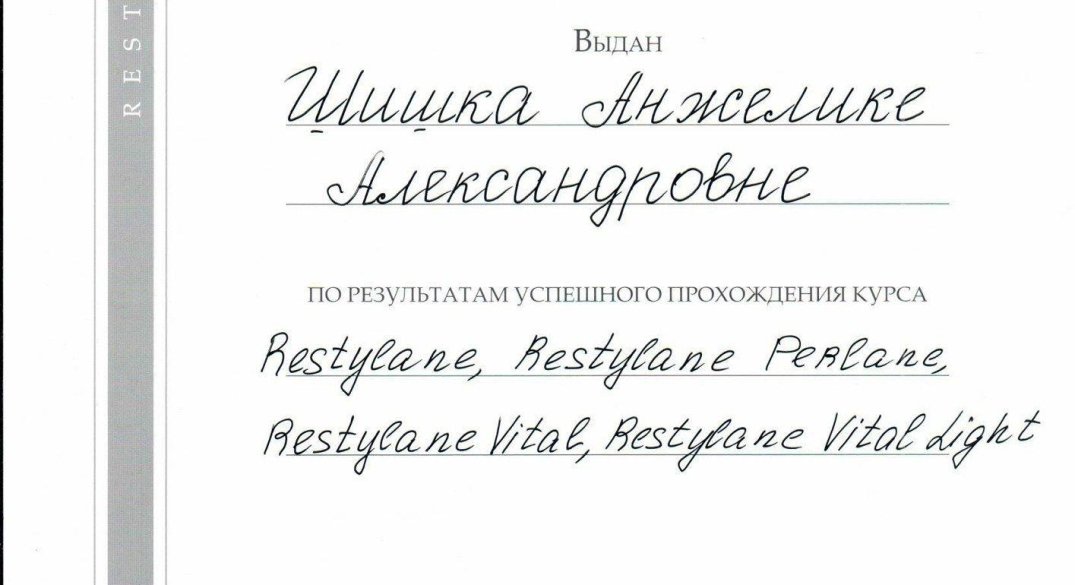 REST
Выдан
Шишка Анжелике
Александровне
по результатам успешного прохождения курса
Restylane, Restylane Perlane,
Restylane Vital, Restylane Vital Light